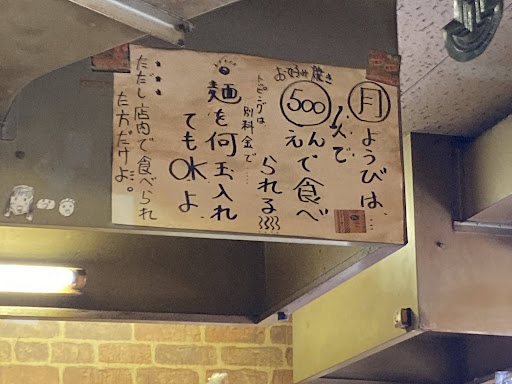 月ようびは、
お好み焼き
が
500えんで食べ
られる
トッピングは
別料金で……
麺を何玉入れ
てもOKよ
ただし店内で食べられ
た方だけよ。